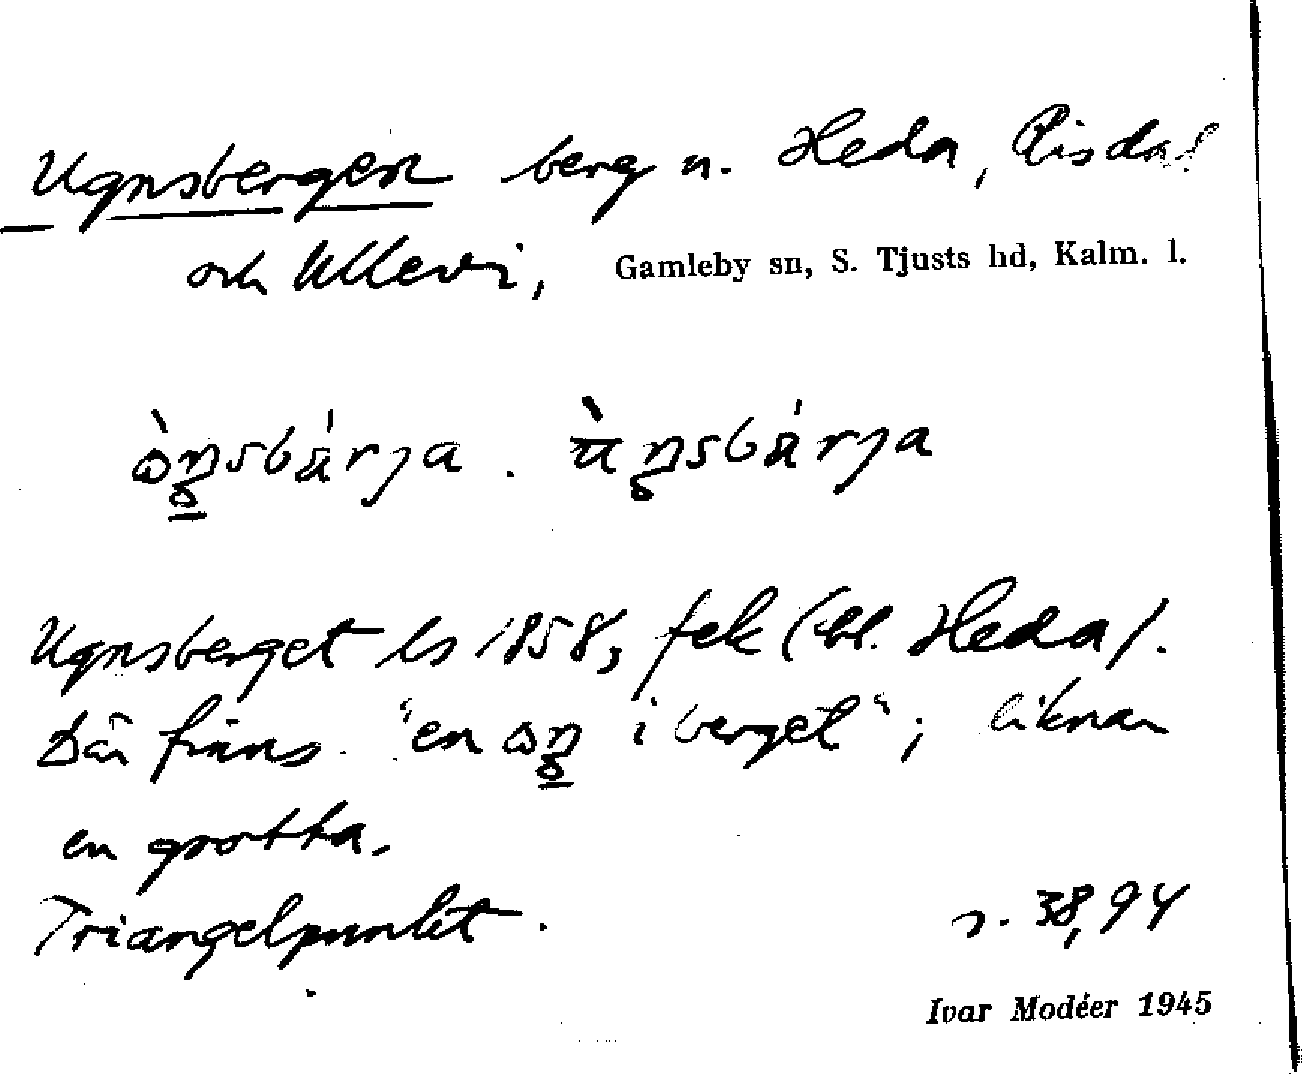 Ugnsbergen berg u. Heda, Risdal
och Ullevi, Gamleby sn, S. Tjusts hd, Kalm. l.
Ugnsberget ls 1858, fek (bl. Heda).
Där finns "en i berget"; liknar
en grotta.
Triangelpunkt.
s. 38, 94
Ivar Modéer 1945